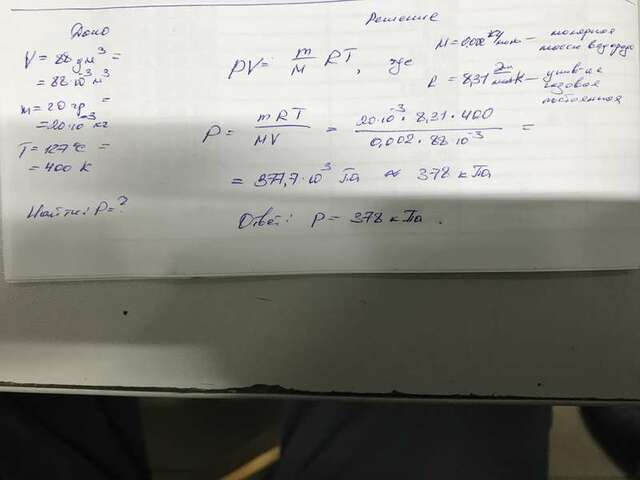 Дано
V = 88 дм³ =
= 88·10⁻³ м³
m = 20 гр =
= 20·10⁻³ кг
T = 127°C =
= 400 K
Найти: P = ?
Решение
PV = m/M RT, где
M = 0,002 кг/моль – молярная
масса водорода
R = 8,31 Дж/мольК – унив-ая
газовая
постоянная
P = mRT/MV = 20·10⁻³ · 8,31 · 400 / 0,002 · 88·10⁻³ =
= 377,7·10³ Па ≈ 378 кПа
Ответ: P = 378 кПа.